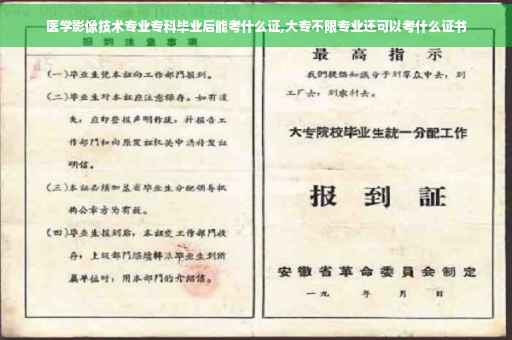 医学影像技术专业专科毕业后能考什么证,大专不限专业还可以考什么证书
报到注意事项
(一)毕业生凭本证向工作部门报到。
(二)毕业生对本证应注意保存。如有遗
失,应即登报声明作废,并报告工
作部门和向原发证机关申请补发证
明信。
(三)本证必须加盖省毕业生分配领导机
构公章方为有效。
(四)毕业生报到后,本证交工作部门收
存;上级部门继续转派毕业生到所
属单位时,用本部门的介绍信。
最高指示
我们提倡知识分子到群众中去,到
工厂去,到农村去。
大专院校毕业生统一分配工作
报到証
安徽省革命委員会制定
一九 年 月 日